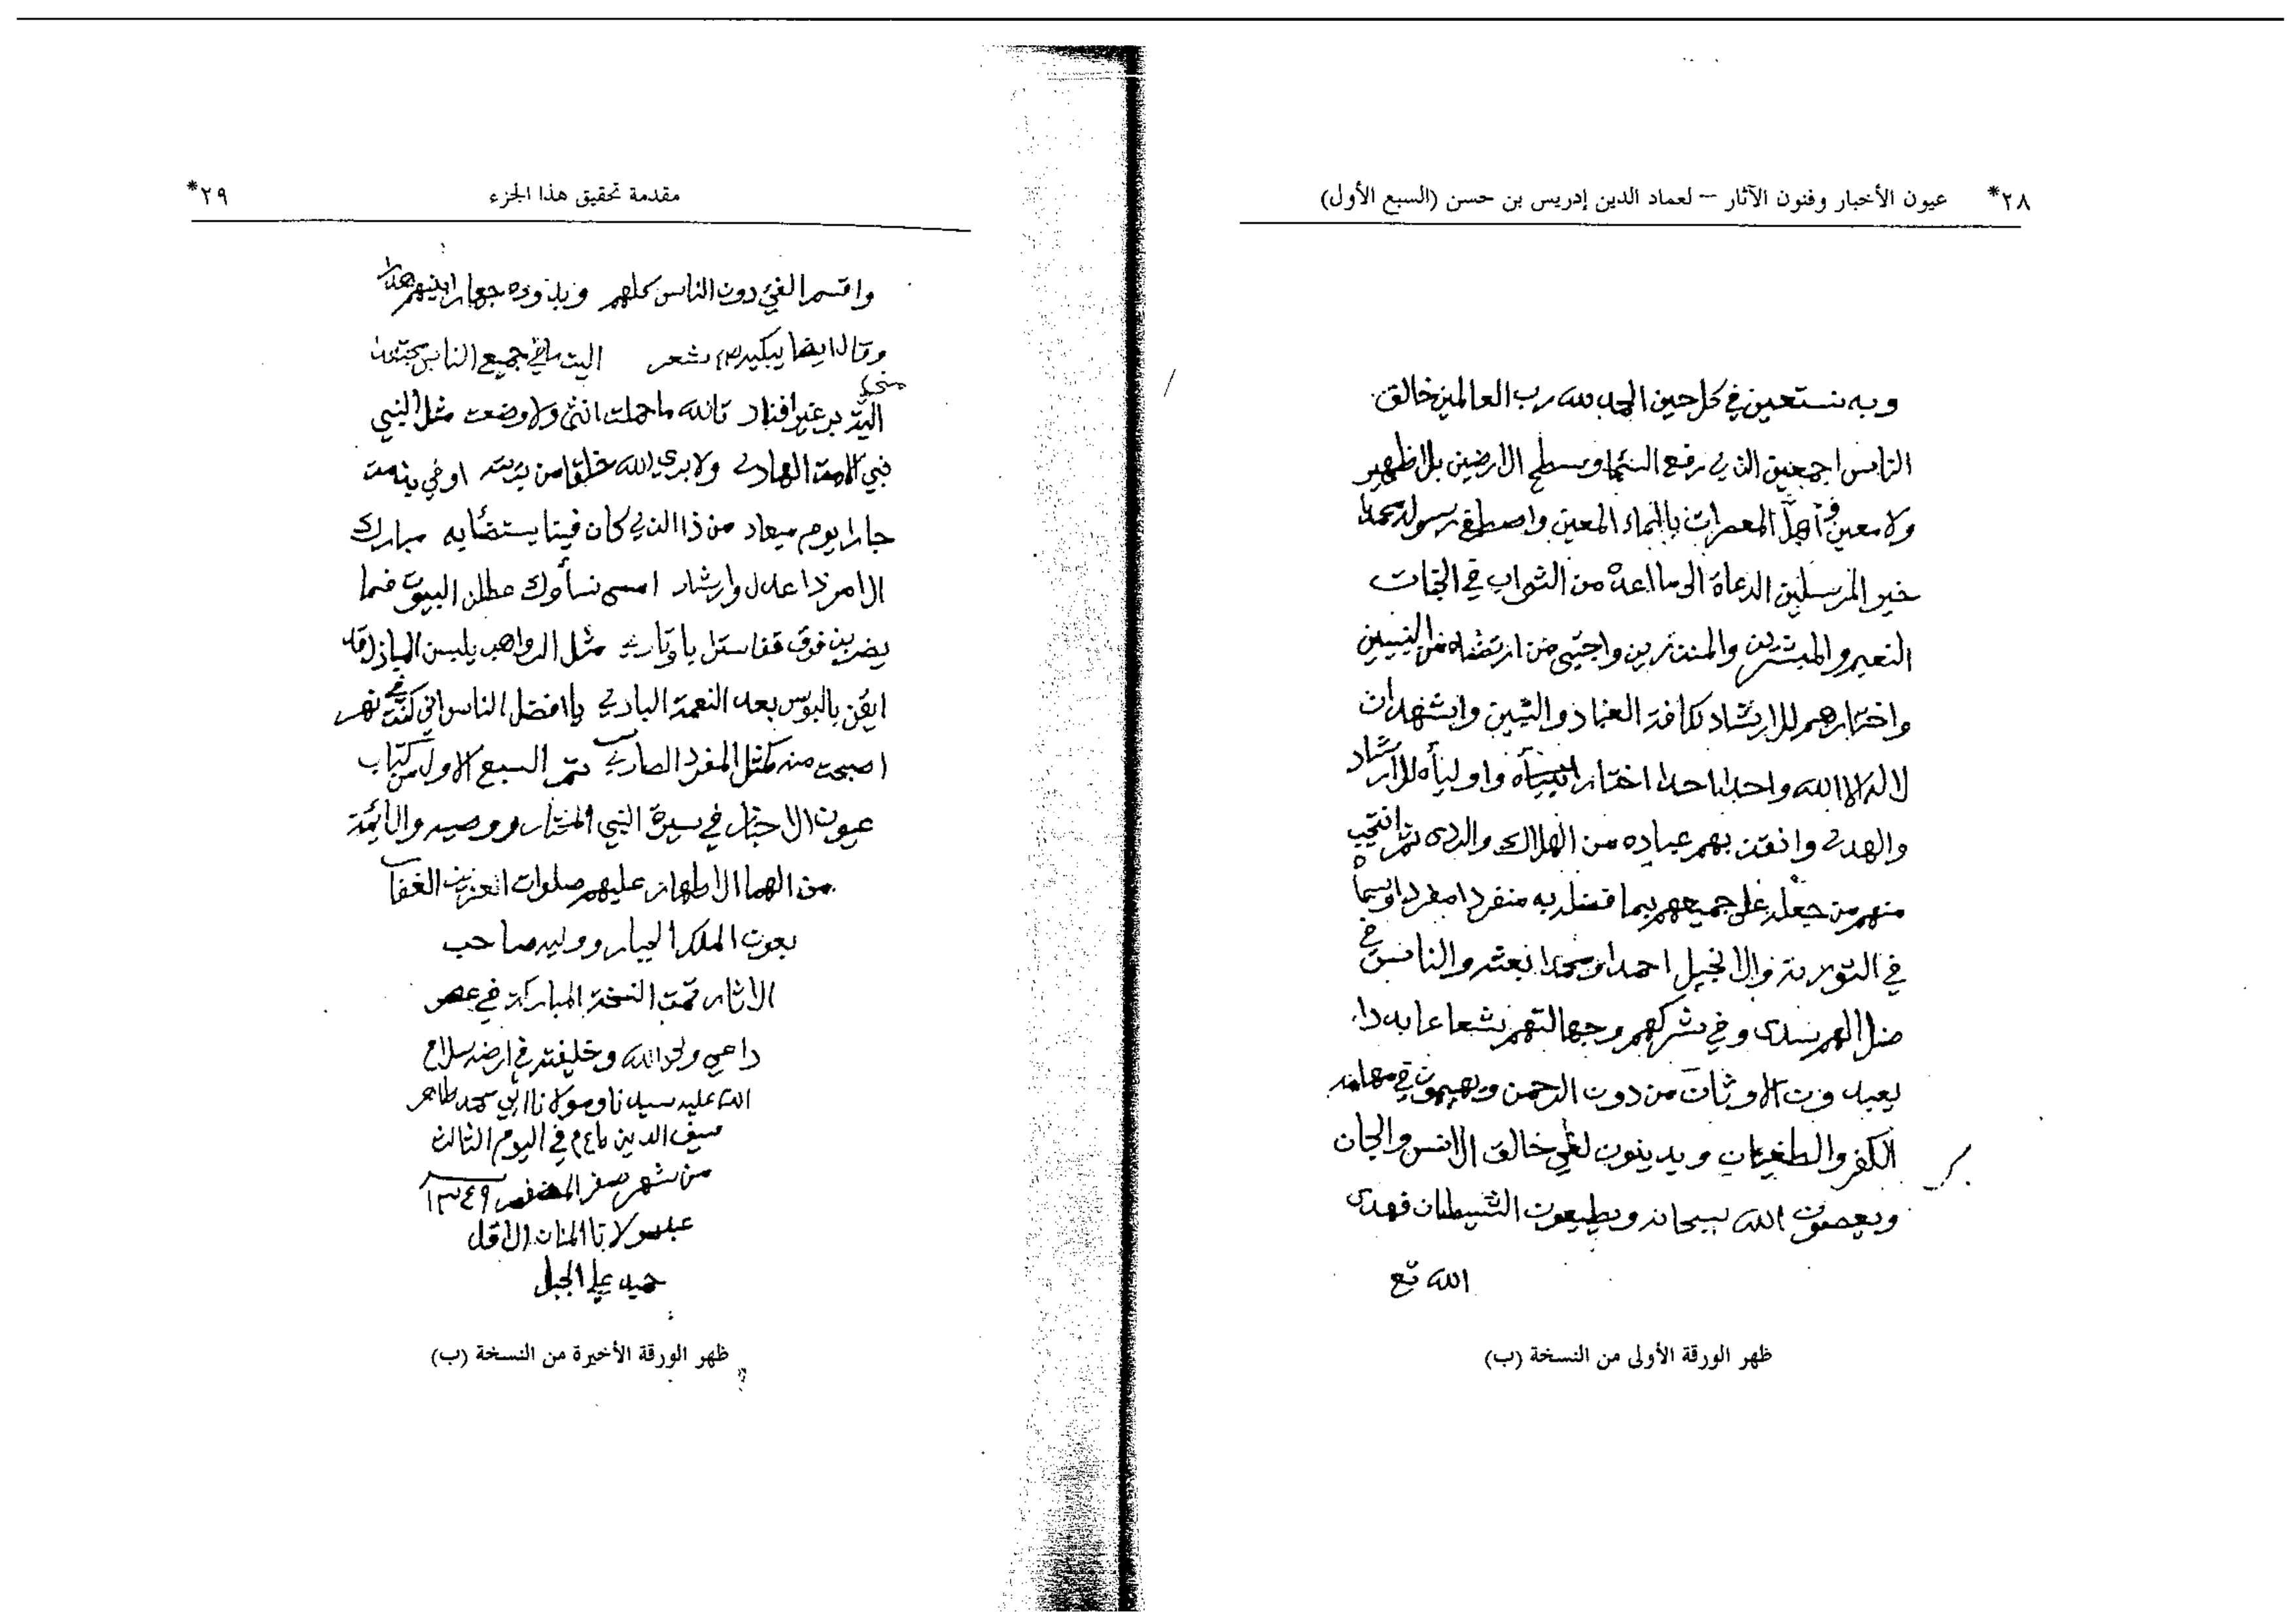 ٢٨* عيون الأخبار وفنون الآثار – لعماد الدين إدريس بن حسن (السبع الأول)
وبه نستعين في كل حين الحمد لله رب العالمين خالق
الناس اجمعين الذي رفع السما وسطح الارضين بلا ظهير
ولا معين و المعصرات بالماء المعين واصطفى رسوله محمدا
خير المرسلين الدعاة الى ما اعده من الثواب في الجنات
النعيم والمبشرين والمنذرين واجتبى من ارتضاه من النبيين
واختارهم للارشاد لكافة العباد والتبيين واشهد ان
لا اله الا الله واحدا احدا اختار انبيآه واوليآه للارشاد
والهدى وانقذ بهم عباده من الهلاك والردى ثم انتجب
منهم من جعله على جميعهم بما فضله به منفردا وسماه
في التورية والانجيل احمدا ومحمدا بعثه والناس في
ضلالهم سدى وفي شركهم وجهالتهم
يعبدون الاوثان من دون الرحمن ويهيمون في
الكفر والطغيان ويدينون خالق الانس والجان
ويعصون الله سبحانه ويطيعون الشيطان فهدى
الله تع
ظهر الورقة الأولى من النسخة (ب)
مقدمة تحقيق هذا الجزء ٢٩*
واقسم الفيء دون الناس كلهم وبددوه جهارا بينهم هدرا
وقال ايضا يبكيه شعر اليت ما في جميع الناس مجتهدا
مني
الية بر غير افناد تالله ما حملت انثى ولا وضعت مثل النبي
نبي الامة الهادي ولا برى الله خلقا من بريته اوفى بذمة
جار او يوم ميعاد من ذا الذي كان فينا يستضآ به مبارك
الامر ذا عدل وارشاد امسى نسآوك عطلن البيوت فما
يضربن فوق قفا ستر باوتاد مثل الرواهب يلبسن المباذل قد
ايقن بالبوس بعد النعمة البادي يا افضل الناس اني كنت في نهر
اصبحت منه كمثل المفرد الصادي تم السبع الاول من كتاب
عيون الاخبار في سيرة النبي المختار ووصيه والائمة
من الهما الاطهار عليهم صلوات العزيز الغفار
بعون الملك الجبار ووليه صاحب
الاثار تمت النسخة المباركة في عصر
داعي ولي الله وخليفته في ارضه سلام
الله عليه سيدنا ومولانا ابي محمد طاهر
سيف الدين في اليوم الثالث
من شهر صفر المظفر ١٣٤٩
عبد مولانا المنان الاقل
حميد علي الجبل
ظهر الورقة الأخيرة من النسخة (ب)